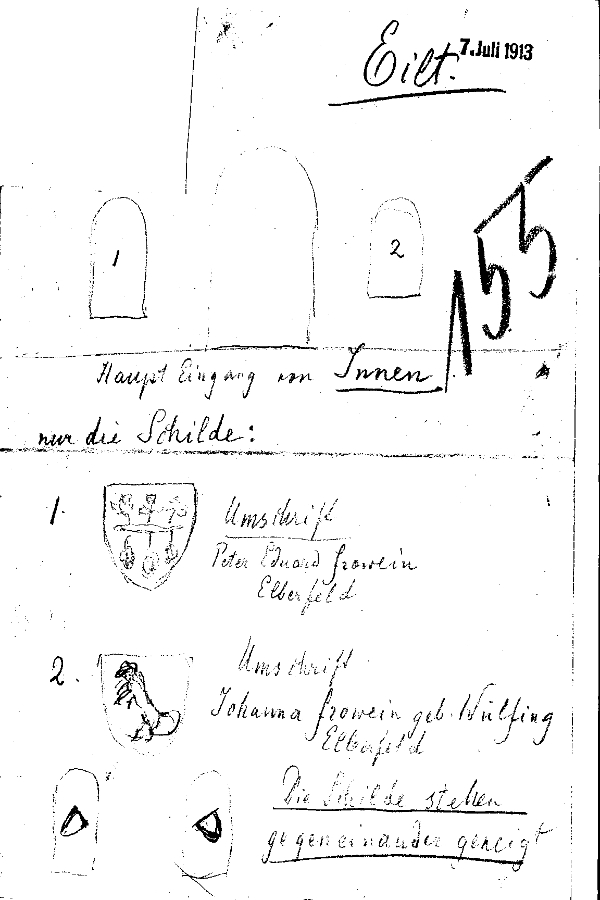 Eilt.
7. Juli 1913
155
1
2
Haupt Eingang von Innen
nur die Schilde:
1.
Umschrift
Peter Eduard Frowein
Elberfeld
2.
Umschrift
Johanna Frowein geb. Wülfing
Elberfeld
Die Schilde stehen
gegeneinander geneigt